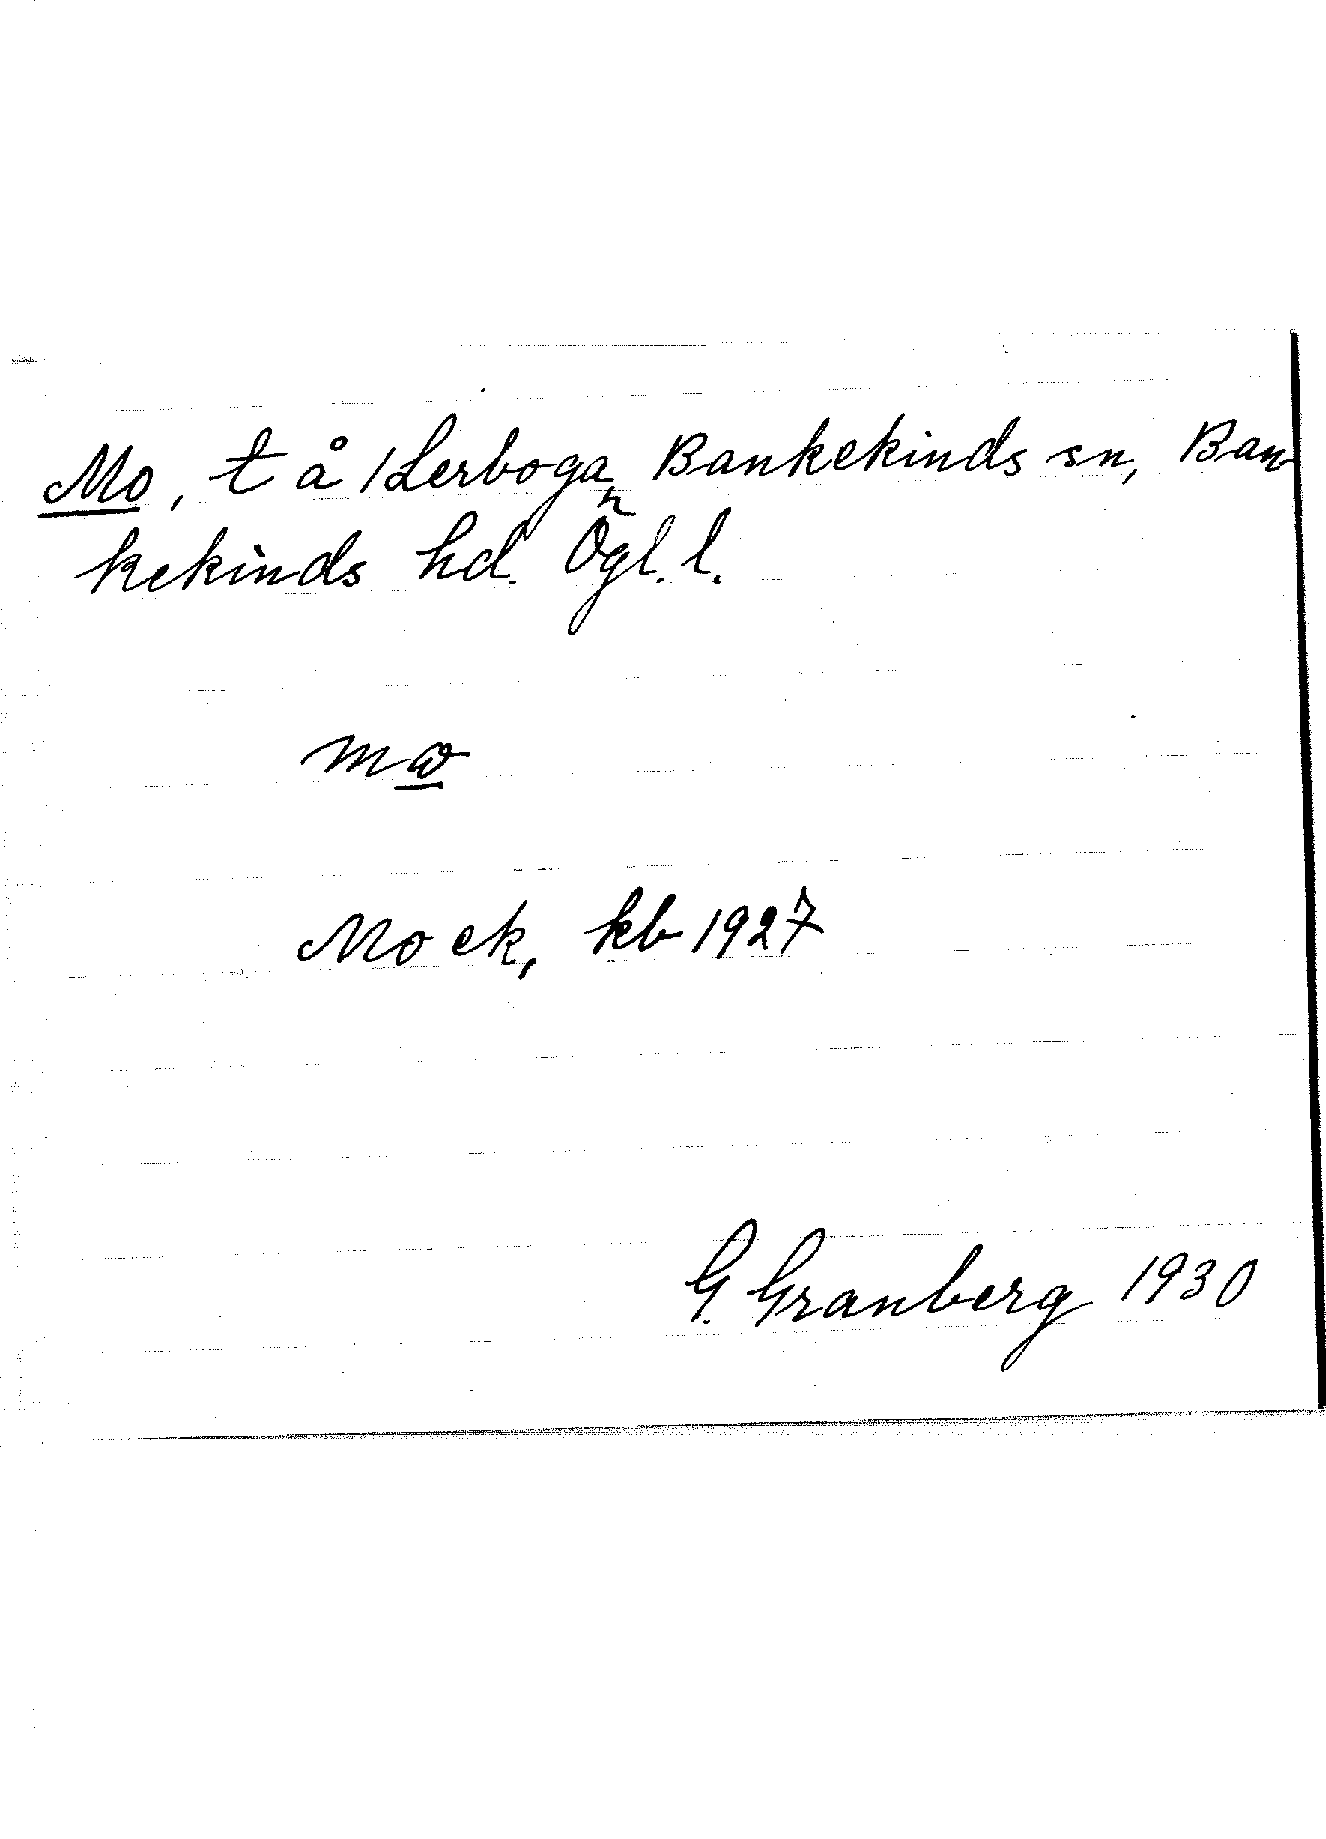 Mo, t å 1 Lerboga, Bankekinds sn, Ban-
kekinds hd. Ögl. l.
mω
Mo ek, kb 1927
G. Granberg 1930